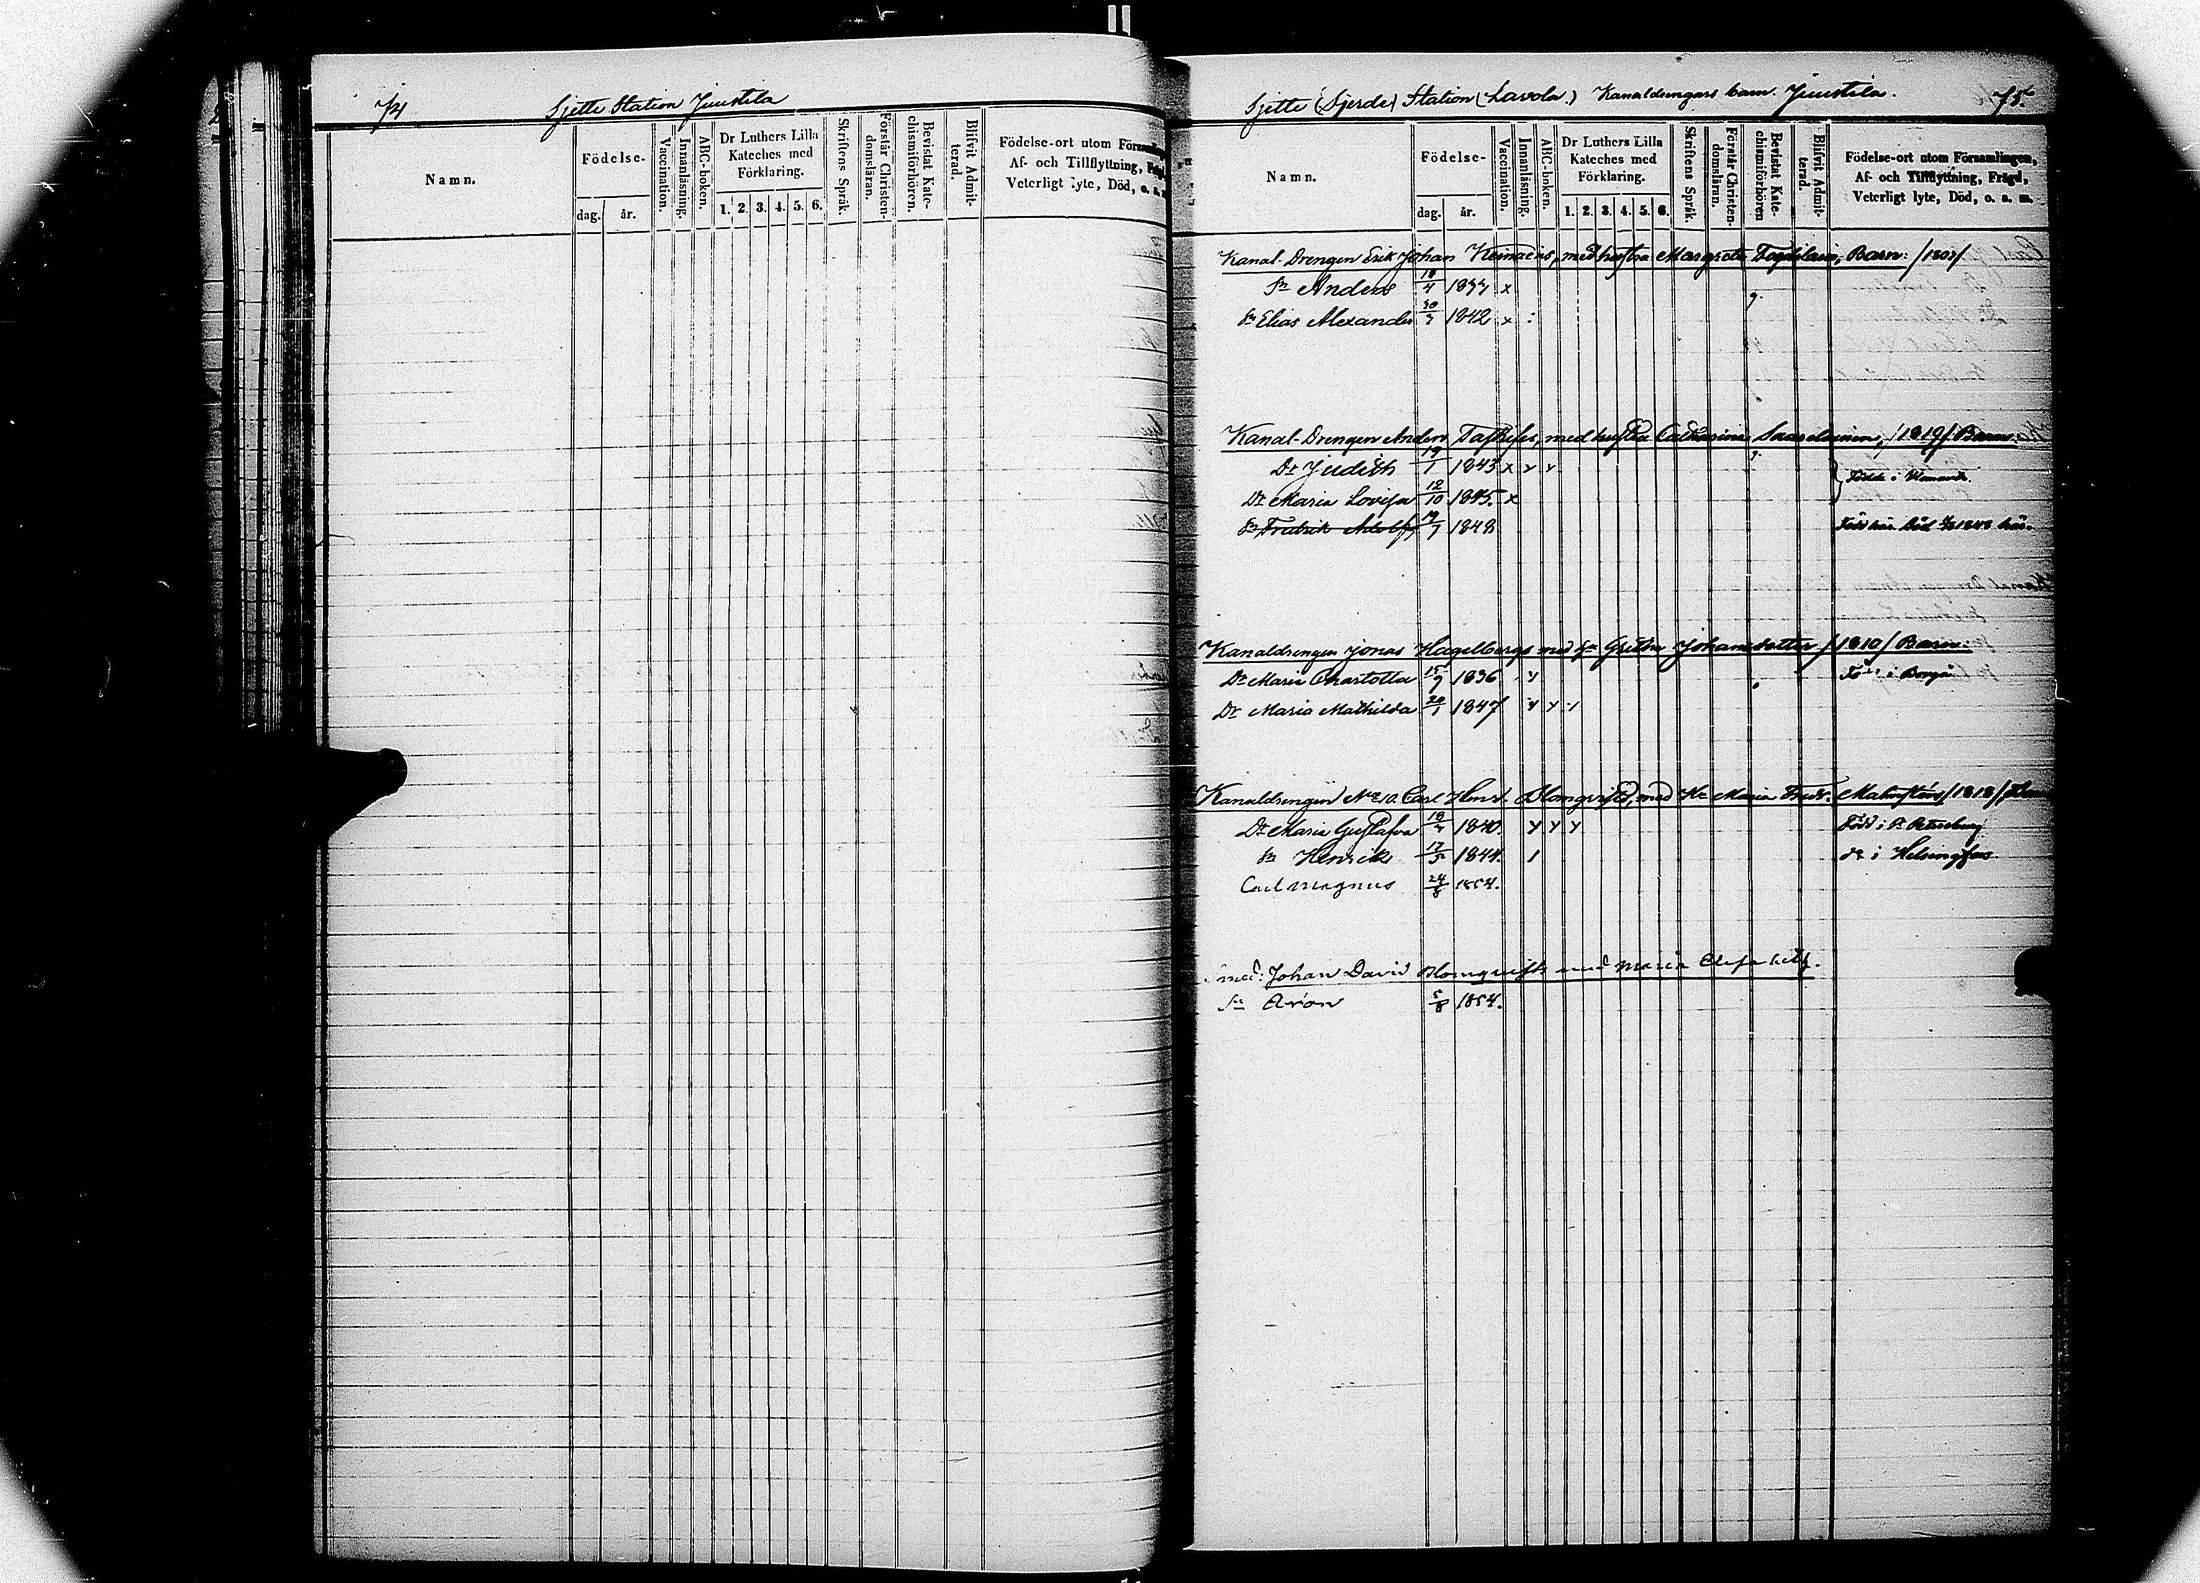 74 Sjette Station Juustila
Namn.
Födelse-
dag. år.
Vaccination.
Innanläsning.
ABC-boken.
Dr Luthers Lilla
Kateches med
Förklaring.
1. 2. 3. 4. 5. 6.
Skriftens Språk.
Förstår Christen-
domsläran.
Bevistat Kate-
chismiförhören.
Blifvit Admit-
terad.
Födelse-ort utom
Af- och Tillflyttning,
Veterligt lyte, Död, o. s.
Sjette (Fjerde) Station (Lavola.) Kanaldrengars barn. Juustila. 75.
Namn.
Födelse-
dag. år.
Vaccination.
Innanläsning.
ABC-boken.
Dr Luthers Lilla
Kateches med
Förklaring.
1. 2. 3. 4. 5. 6.
Skriftens Språk.
Förstår Christen-
domsläran.
Bevistat Kate-
chismiförhören
Blifvit Admit-
terad.
Födelse-ort utom Församlingen,
Af- och Tillflyttning, Frägd,
Veterligt lyte, Död, o. s. m.
Kanal-Drengen Erik Johan med hustru Margreta Barn:
Sn Anders x
Sn Elias Alexander 30/3 1842 x
Kanal-Drengen Anders med hustru Catharina /1819/ Barn:
Dr Judith 19/1 1843 x y y Födde i
Dr Maria Lovisa 12/10 1845. x
Sn Fredrik Adolf, 19/7 1848 Född här. Död 1848 här.
Kanaldrengen Jonas Hagelbergs med Johansdotter /1810/ Barn:
Dr Maria Charlotta 15/9 1836 y i Borgå
Dr Maria Mathilda 20/1 1847 y y
Kanaldrengen No 10. Carl Henr. Blomqvists, med Maria Fredr. /1818/
Dr Maria Gustafva 1840. y y y Född i St Petersburg
Sn Henrik 17/5 1844. do i Helsingfors.
Carl Magnus 24/8 1854.
Johan David Blomqvist med Maria
Sn Aron 5/8 1854.